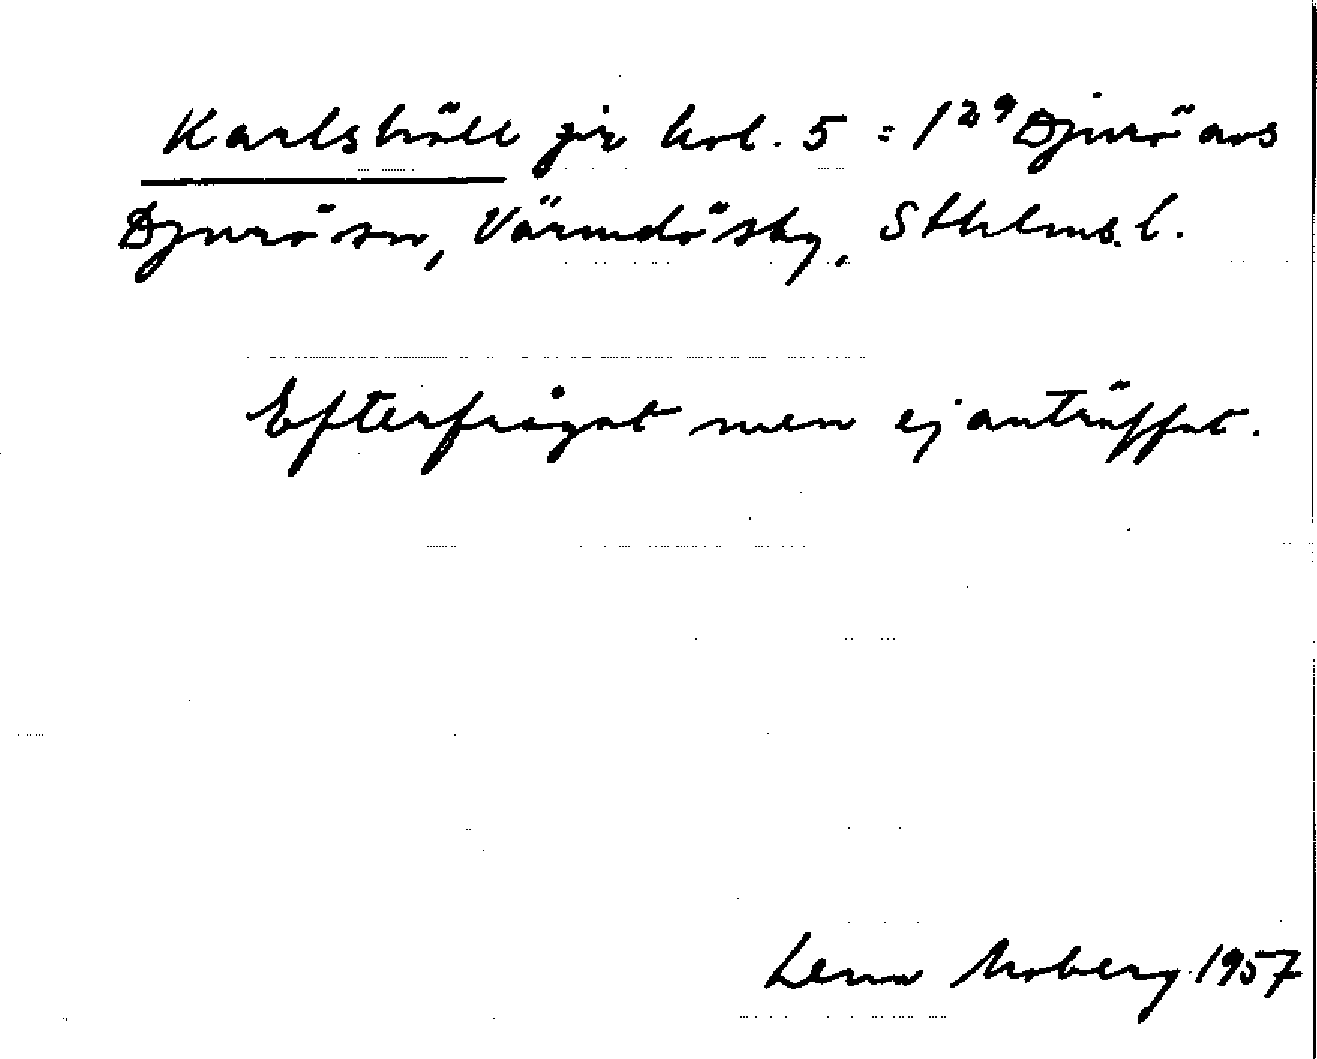 Karlshäll jr kol. 5 = 1²⁹ Djurö avs
Djurö sn, Värmdö sky, Sthlms. l.
Efterfrågat men ej anträffat.
Lena Moberg 1957